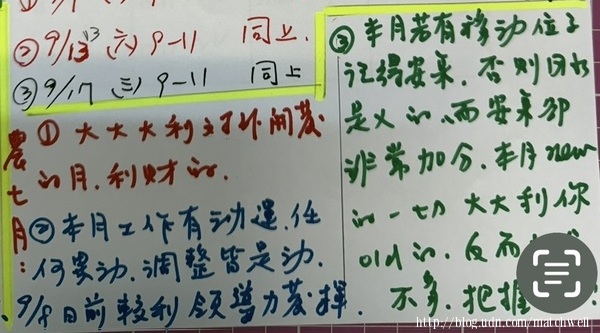 ② 9/13 13 (六) 9-11 同上.
③ 9/17 (三) 9-11 同上
農七月:
① 大大大利於外開發
的月.利財的.
② 本月工作有动運.任
何異动.調整皆是动.
9/8日前較利領導力發揮.
③ 本月若有移动位子
記得安桌.否則因如
是X的、而安桌卻
非常加分.本月new
的一切大大利你
old的.反而
不多.把握
http://blog.udn.com/marchwell